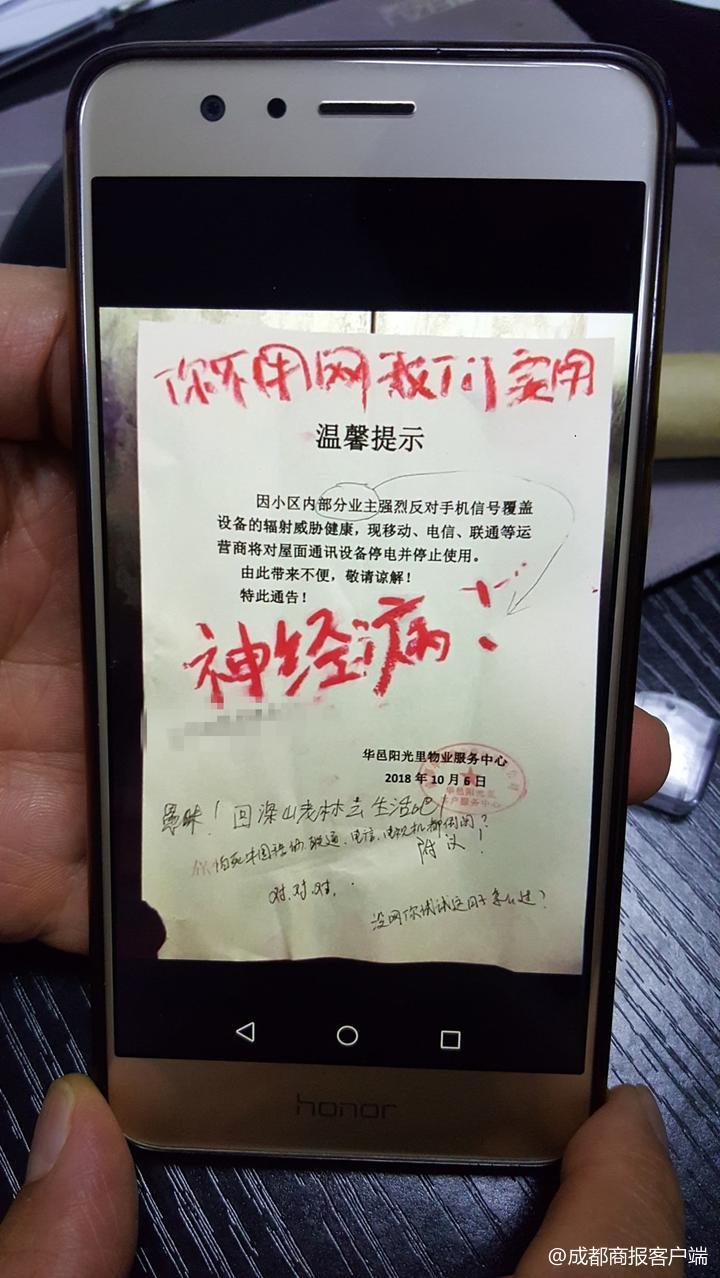 你不用网我们要用
温馨提示
因小区内部分业主强烈反对手机信号覆盖
设备的辐射威胁健康，现移动、电信、联通等运
营商将对屋面通讯设备停电并停止使用。
由此带来不便，敬请谅解！
特此通告！
神经病！
华邑阳光里物业服务中心
2018年10月6日
客户服务中心
愚昧！回深山老林去生活吧！
你怕死中国移动、联通、电信、电视机都倒闭？
附议！
对、对、对、
没网你试试这日子怎么过？
honor
@成都商报客户端